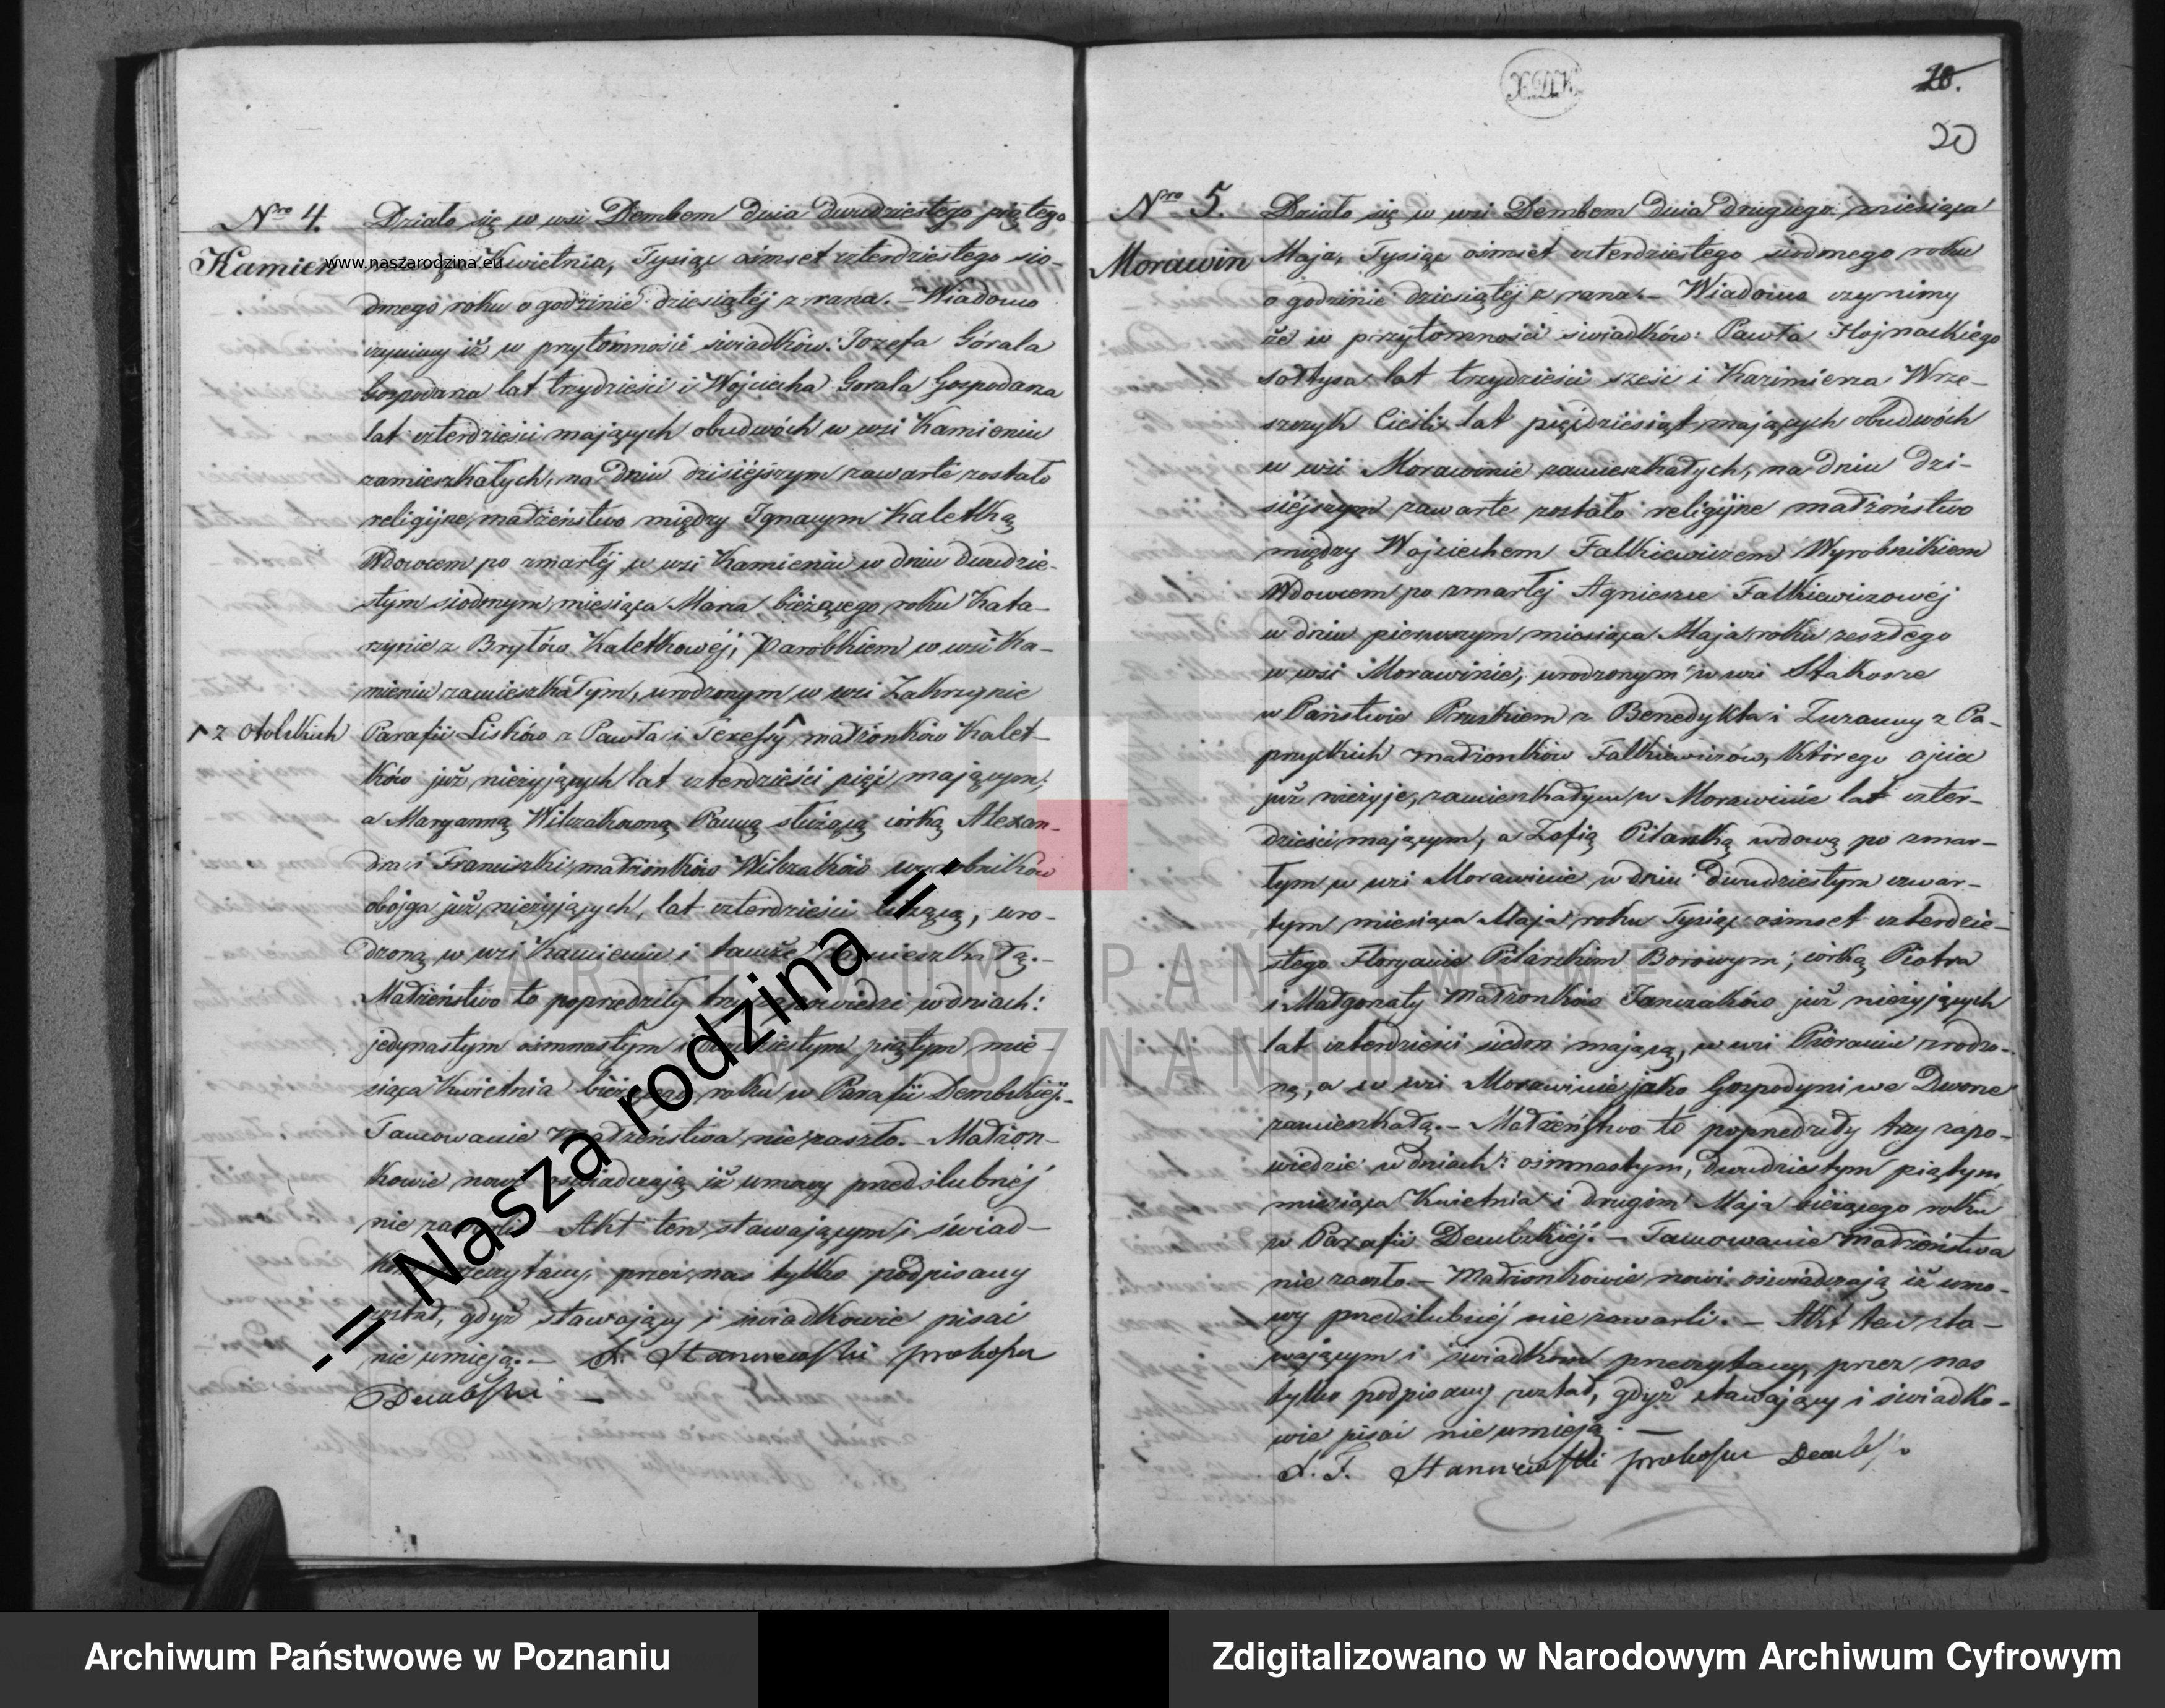 18.
20
Nro 4.
Kamień
www.naszarodzina.eu
Działo się w wsi Dembem dnia dwudziestego piątego
Kwietnia, Tysiąc ośmset czterdziestego sió-
dmego roku o godzinie dziesiątéj z rana. – Wiadomo
czynimy iż w przytomności świadków: Jozefa Górala
Gospodarza lat trzydzieści i Wojciecha Gorala Gospodarza
lat czterdzieści mających obudwóch w wsi Kamieniu
zamieszkałych, na dniu dzisiéjszym zawarte zostało
religijne małżeństwo między Ignacym Kaletką
Wdowcem po zmarłéj w wsi Kamieniu w dniu dwudzie-
stym siodmym miesiąca Marca bieżącego roku Kata-
rzynie z Brylów Kaletkowéj, Parobkiem w wsi Ka-
mieniu zamieszkałym, urodzonym w wsi Zakrzynie
z Otolskich
Parafii Lisków z Pawła i Teressy małżonków Kalet-
ków już nieżyjących lat czterdzieści pięć mającym,
a Maryanną Wilczakowną Panną służącą córką Alexan-
dra i Franciszki małżonków Wilczaków wyrobników
obojga już nieżyjących, lat czterdzieści liczącą, uro-
dzoną w wsi Kamieniu i tamże zamieszkałą. –
Małżeństwo to poprzedziły trzy zapowiedzi w dniach:
jedynastym ośmnastym i dwudziestym piątym mie-
siąca Kwietnia bieżącego roku w Parafii Dembskiéj. –
Tamowanie małżeństwa nie zaszło. – Małżon-
kowie nowi oświadczają iż umowy przedślubnéj
nie zawarli – Akt ten stawającym i świad-
kom przeczytany, przez nas tylko podpisany
został, gdyż stawający i świadkowie pisać
nie umieją. – Stanczewsski proboszcz
Dembsski –
-= Nasza rodzina =-
Nro 5.
Morawin
Działo się w wsi Dembem dnia drugiego miesiąca
Maja, Tysiąc ośmset czterdziestego siodmego roku
o godzinie dziesiątéj z rana. – Wiadomo czynimy
że w przytomności świadków: Pawła Hojnackiego
sołtysa lat trzydzieści sześć i Kazimierza Wrze-
szczyk Cieśli lat pięćdziesiąt mających obudwóch
w wsi Morawinie zamieszkałych, na dniu dzi-
siéjszym zawarte zostało religijne małżeństwo
między Wojciechem Falkiewiczem Wyrobnikiem
Wdowcem po zmarłéj Agnieszce Falkiewiczowéj
w dniu pierwszym miesiąca Maja roku zeszłego
w wsi Morawinie, urodzonym w wsi
w Państwie Pruskiem z Benedykta i Zuzanny z Pa-
przyckich małżonków Falkiewiczów, którego ojciec
już nieżyje, zamieszkałym w Morawinie lat czter-
dzieści mającym, a Zofią Pilarską wdową po zmar-
łym w wsi Morawinie w dniu dwudziestym czwar-
tym miesiąca Maja roku Tysiąc ośmset czterdzie-
stego Floryanie Pilarskim Borowym, córką Piotra
i Małgorzaty małżonków Janczaków już nieżyjących
lat czterdzieści siedm mającą, w wsi urodzo-
ną, a w wsi Morawinie jako Gospodyni we Dworze
zamieszkałą. – Małżeństwo to poprzedziły trzy zapo-
wiedzie w dniach: ośmnastym, dwudziestym piątym
miesiąca Kwietnia i drugim Maja bieżącego roku
w Parafii Dembskiéj. – Tamowanie małżeństwa
nie zaszło. – Małżonkowie nowi oświadczają iż umo-
wy przedślubnéj nie zawarli. – Akt ten sta-
wającym i świadkom przeczytany, przez nas
tylko podpisany został, gdyż stawający i świadko-
wie pisać nie umieją. –
Stanczewsski proboszcz Demb
ARCHIWUM PAŃSTWOWE
W POZNANIU
Archiwum Państwowe w Poznaniu
Zdigitalizowano w Narodowym Archiwum Cyfrowym